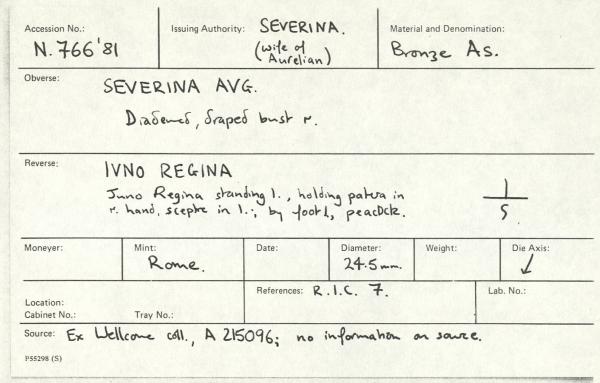 Accession No.: Issuing Authority: SEVERINA. Material and Denomination:
N. 766'81 (wife of Aurelian) Bronze As.
Obverse: SEVERINA AVG.
Diademed, draped bust r.
Reverse: IVNO REGINA
Juno Regina standing l., holding patera in
r. hand, sceptre in l.; by foot l, peacock.
S
Moneyer: Mint: Date: Diameter: Weight: Die Axis:
Rome. 24.5 mm. ↙
References: R.I.C. 7. Lab. No.:
Location:
Cabinet No.: Tray No.:
Source: Ex Wellcome coll., A 215096; no information on source.
P55298 (S)